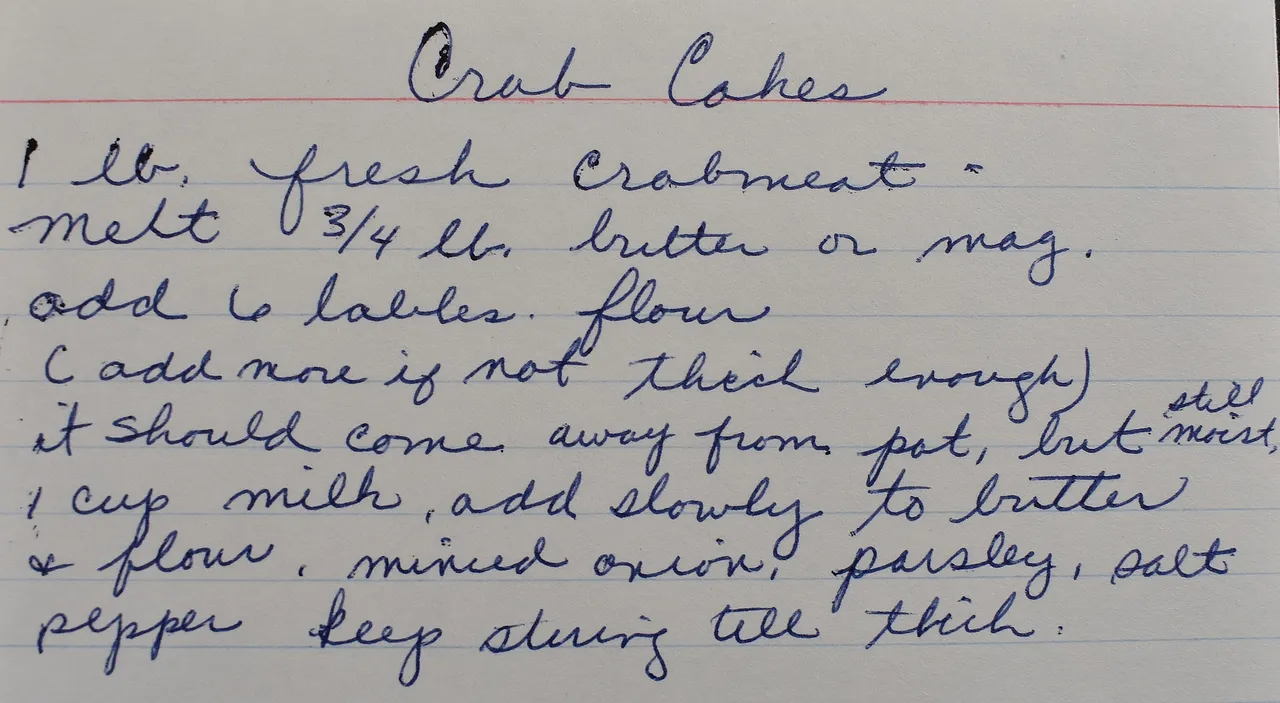 Crab Cakes
1 lb. fresh crabmeat -
melt 3/4 lb. butter or mag.
add 6 tables. flour
(add more if not thick enough)
it should come away from pot, but still moist,
1 cup milk, add slowly to butter
& flour, minced onion, parsley, salt
pepper keep stiring till thick.